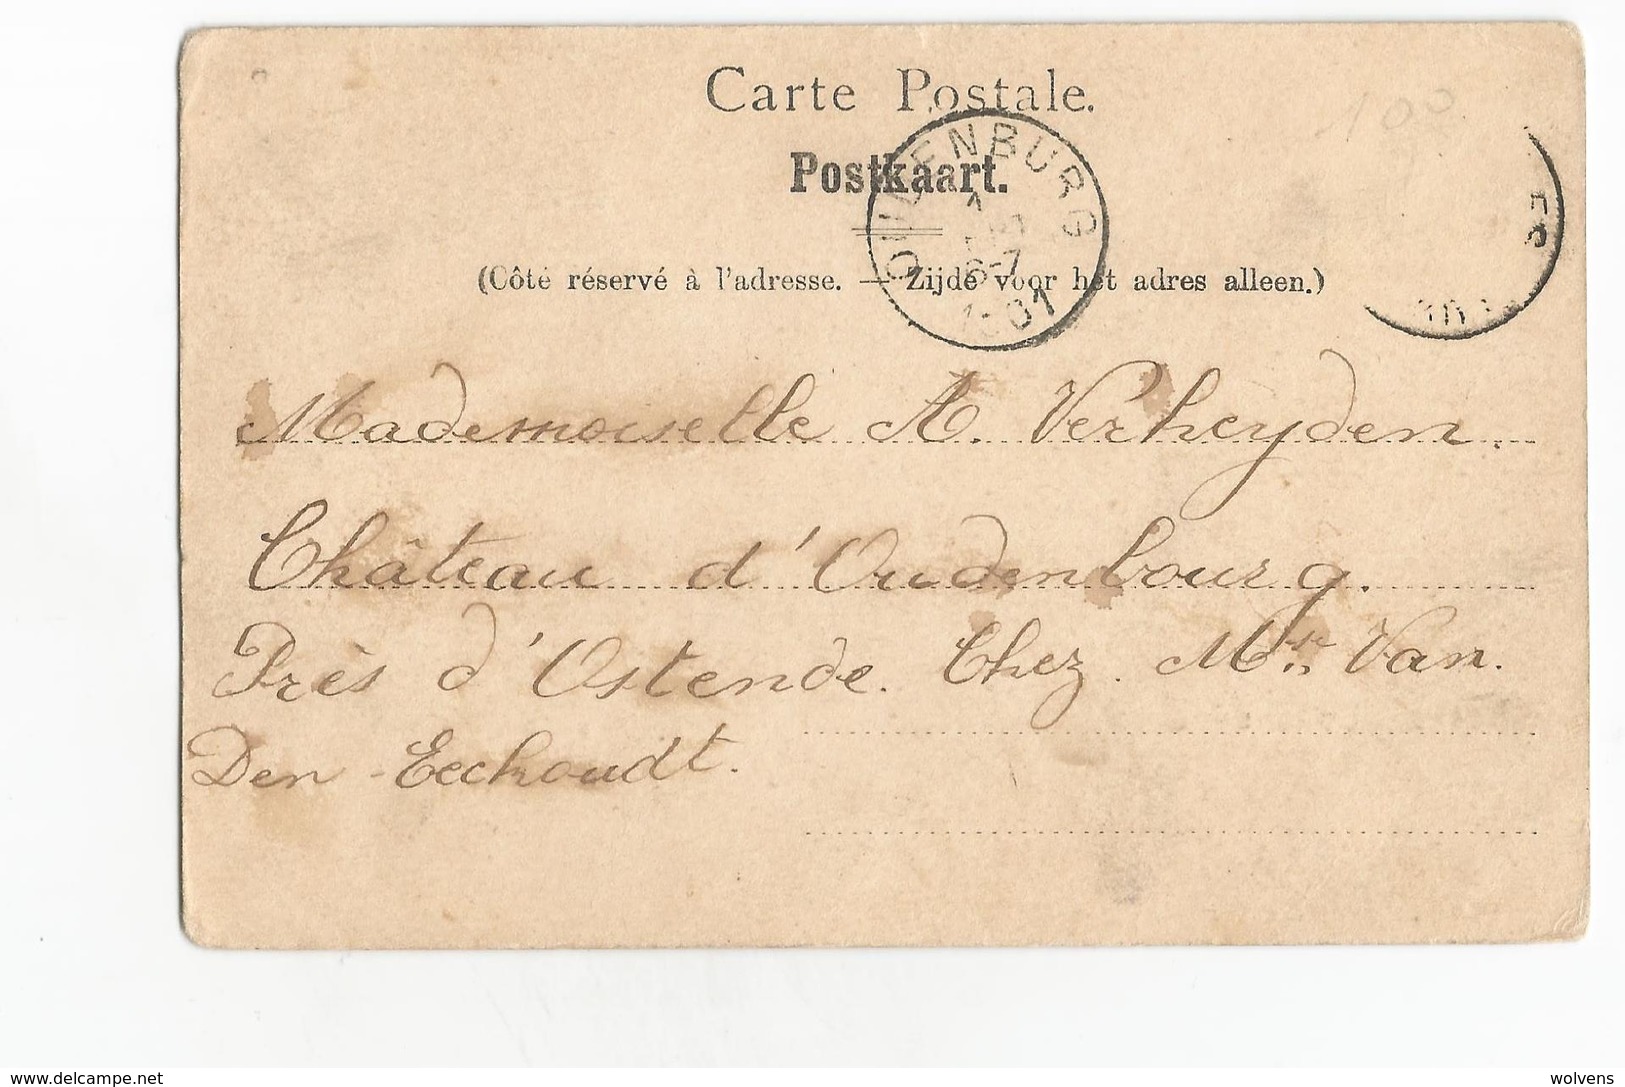 Carte Postale.
Postkaart.
(Côté réservé à l'adresse. — Zijde voor het adres alleen.)
100
6-7
Mademoiselle A. Verheyden.
Château d'Oudenbourg.
Près d'Ostende. Chez. Mr. Van.
Den Eeckhoudt.
www.delcampe.net
wolvens